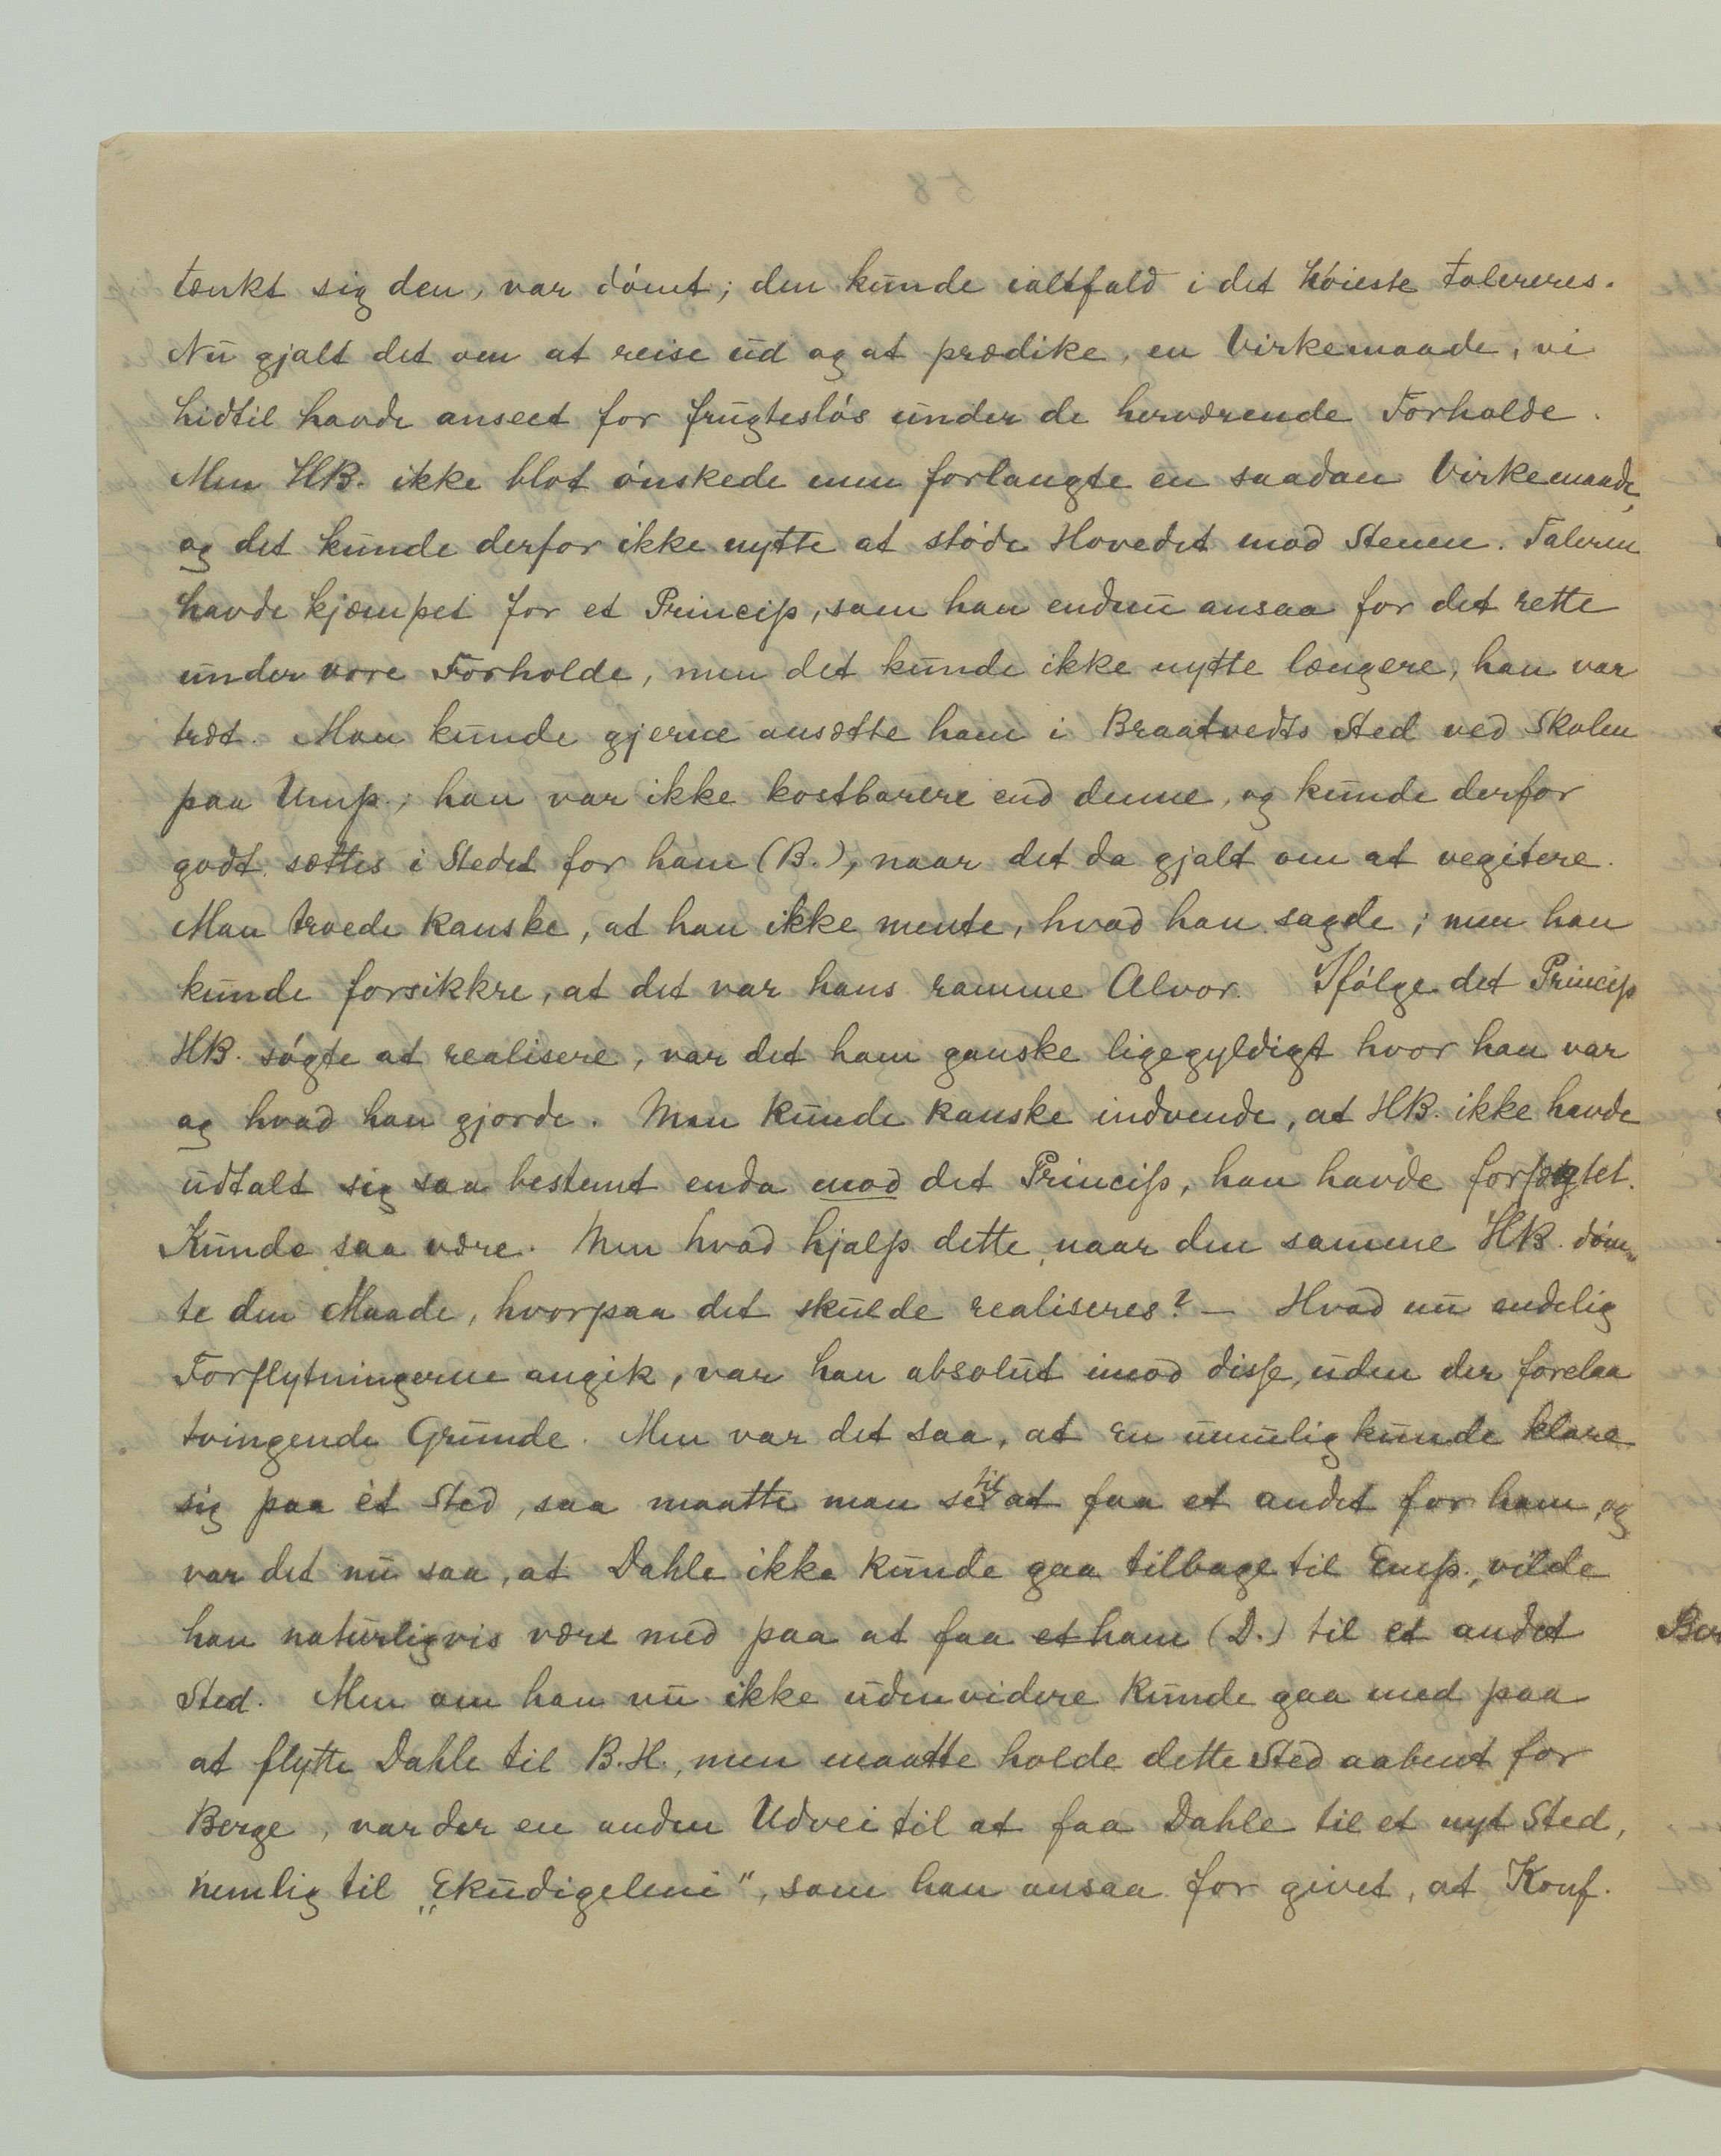 tænkt sig den, var dømt; den kunde ialtfald i det Høieste tolereres.
Nu gjalt det om at reise ud og at prædike, en Virkemaade, vi
hidtil havde anseet for frugtesløs under de herværende Forholde.
Men HB. ikke blot ønskede men forlangte en saadan Virkemaade,
og det kunde derfor ikke nytte at støde Hovedet mod Stenen. Taleren
havde kjæmpet for et Princip, som han endnu ansaa for det rette
under vore Forholde, men det kunde ikke nytte længere, han var
træt. Man kunde gjerne ansætte ham i Braatvedts Sted ved Skolen
paa Ump.; han var ikke kostbarere end denne, og kunde derfor
godt sættes i Stedet for ham (B.), naar det da gjalt om at vegitere.
Man troede kanske, at han ikke mente, hvad han sagde; men han
kunde forsikkre, at det var hans ramme Alvor. Ifølge det Princip
HB. søgte at realisere, var det ham ganske ligegyldigt hvor han var
og hvad han gjorde. Man kunde kanske indvende, at HB. ikke havde
udtalt sig saa bestemt enda mod det Princip, han havde forfægtet.
Kunde saa være. Men hvad hjalp dette, naar den samme HB. døm-
te den Maade, hvorpaa det skulde realiseres? — Hvad nu endelig
Forflytningerne angik, var han absolut imod disse, uden der forelaa
tvingende Grunde. Men var det saa, at en umulig kunde klare
sig paa ét Sted, saa maatte man se til at faa et andet for ham, og
var det nu saa, at Dahle ikke kunde gaa tilbage til Emp., vilde
han naturligvis være med paa at faa et ham (D.) til et andet
Sted. Men om han nu ikke uden videre kunde gaa med paa
at flytte Dahle til B.H., men maatte holde dette Sted aabent for
Berge, var der en anden Udvei til at faa Dahle til et nyt Sted,
nemlig til „Ekudigeleni", som han ansaa for givet, at Konf.